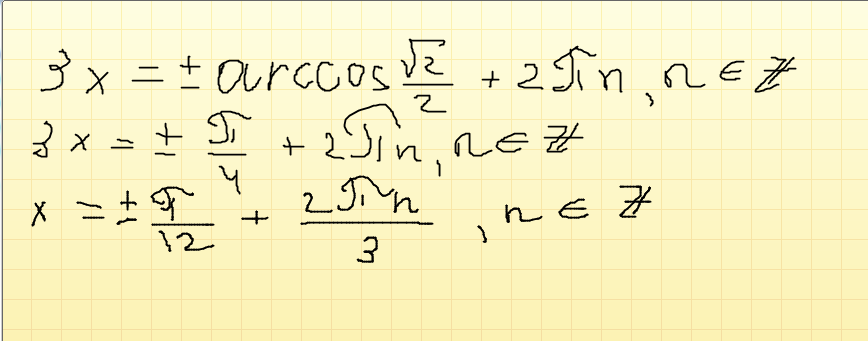 3x = ± arccos √2/2 + 2πn, n ∈ ℤ
3x = ± π/4 + 2πn, n ∈ ℤ
x = ± π/12 + 2πn/3, n ∈ ℤ